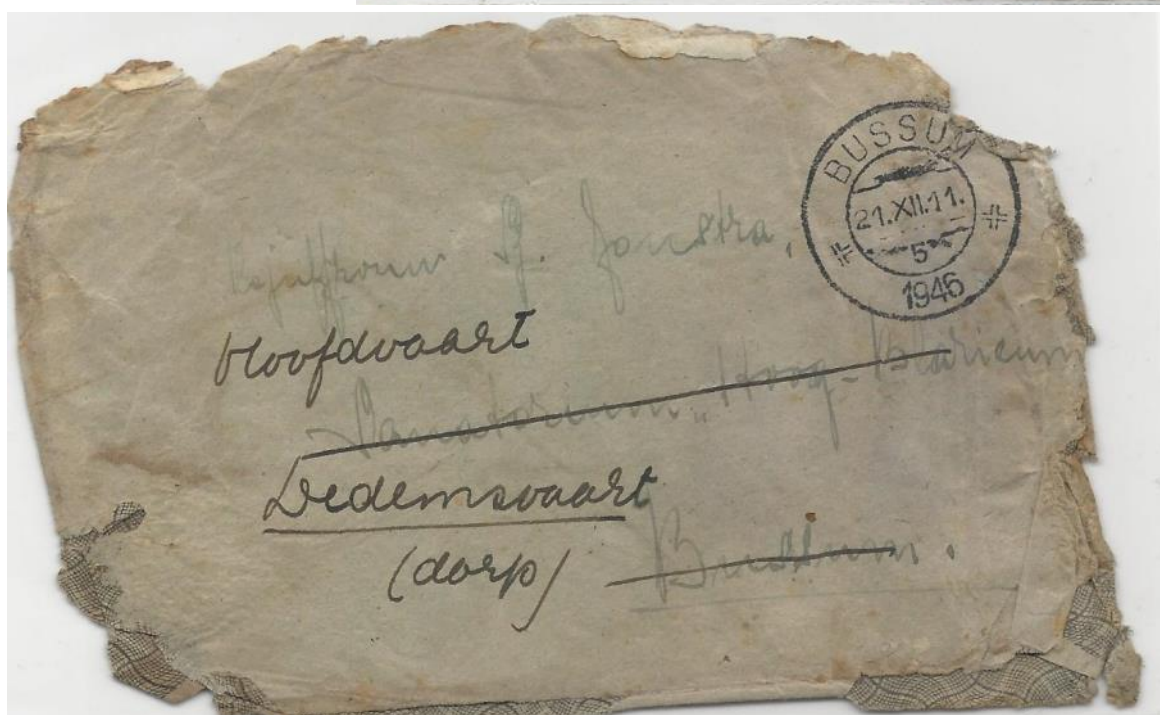 BUSSUM
21.XII.11.
5
1945
Mejuffrouw G. Jonstra,
Hoofdvaart
Sanatorium „Hoog-Blaricum
Dedemsvaart
(dorp) Bussum.